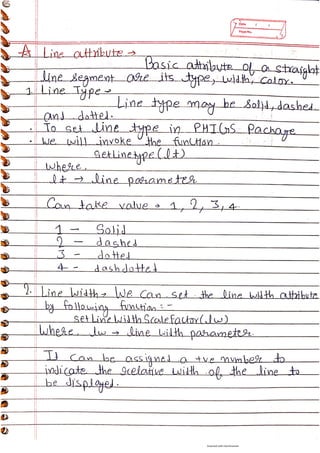 A Line attribute →
Basic attribute of a straight
line segment are its type, width, Color.
1 Line Type →
Line type may be Solid, dashed
and dotted.
· To set line type in PHIGS Package
· we will invoke the function.
setLinetype (lt)
where,
lt → line parameter
Can take value → 1, 2, 3, 4
1 – Solid
2 – dashed
3 – dotted
4 – dashdotted
2. Line Width → We can set the line width attribute
by following function :–
set Line Width Scale factor (lw)
Where, lw → line width parameter
It can be assigned a +ve number to
indicate the relative width of the line to
be displayed.